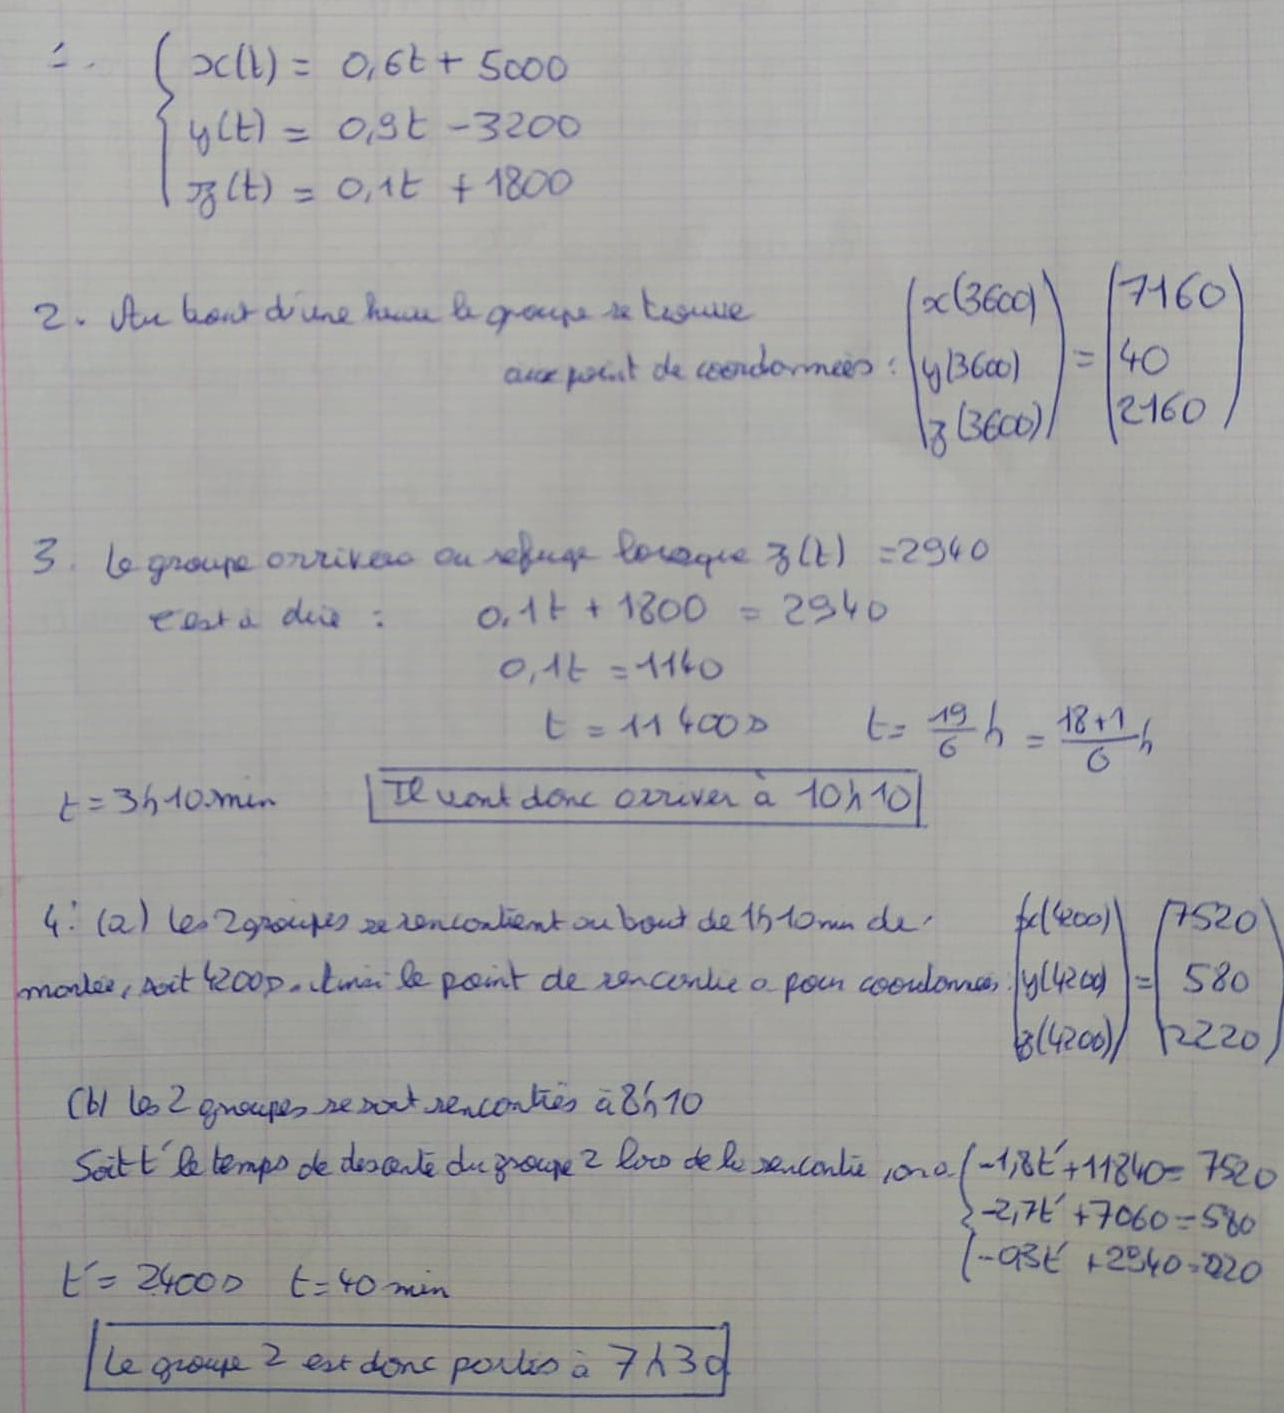 1. { x(t) = 0,6t + 5000
y(t) = 0,9t - 3200
z(t) = 0,1t + 1800
2. Au bout d'une heure le groupe se trouve
aux point de coordonnées : (x(3600) y(3600) z(3600)) = (7160 40 2160)
3. Le groupe arrivera au refuge lorsque z(t) = 2940
c'est à dire : 0,1t + 1800 = 2940
0,1t = 1140
t = 11400s t = 19/6 h = 18+1/6 h
t = 3h10min Il vont donc arriver à 10h10
4. (a) Les 2 groupes se rencontrent au bout de 1h10min de
montée, soit 4200s. Ainsi le point de rencontre a pour coordonnées : (x(4200) y(4200) z(4200)) = (7520 580 2220)
(b) Les 2 groupes se sont rencontrés à 8h10
Soit t' le temps de descente du groupe 2 lors de la rencontre, on a { -1,8t' + 11840 = 7520
-2,7t' + 7060 = 580
-0,3t' + 2940 = 2220
t' = 2400s t = 40 min
Le groupe 2 est donc partis à 7h30